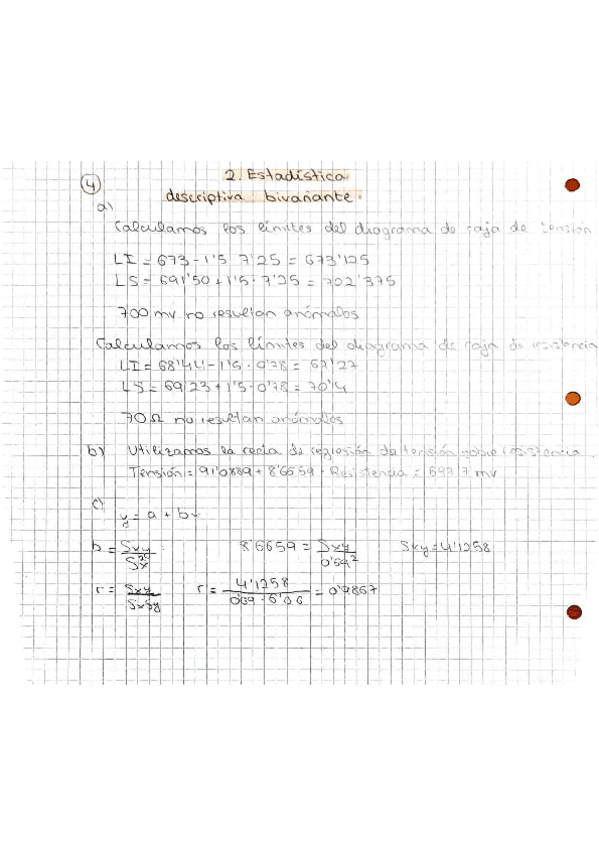 4
2. Estadística
descriptiva bivariante.
a)
Calculamos los límites del diagrama de caja de tensión
LI = 673 - 1'5 7'25 = 673'125
LS = 691'50 + 1'5 · 7'25 = 702'375
700 mv no resultan anómalos
Calculamos los límites del diagrama de caja de resistencia
LI = 68'44 - 1'5 · 0'78 = 67'27
LS = 69'23 + 1'5 · 0'78 = 70'4
70Ω no resultan anómalos
b) Utilizamos la recta de regresión de tensión sobre resistencia
Tensión = 91'0889 + 8'6659 · Resistencia = 697'7 mv
c)
y = a + bx
b = Sxy / Sx² 8'6659 = Sxy / 0'69² Sxy = 4'1258
r = Sxy / SxSy r = 4'1258 / 0'69 · 6'06 = 0'9867